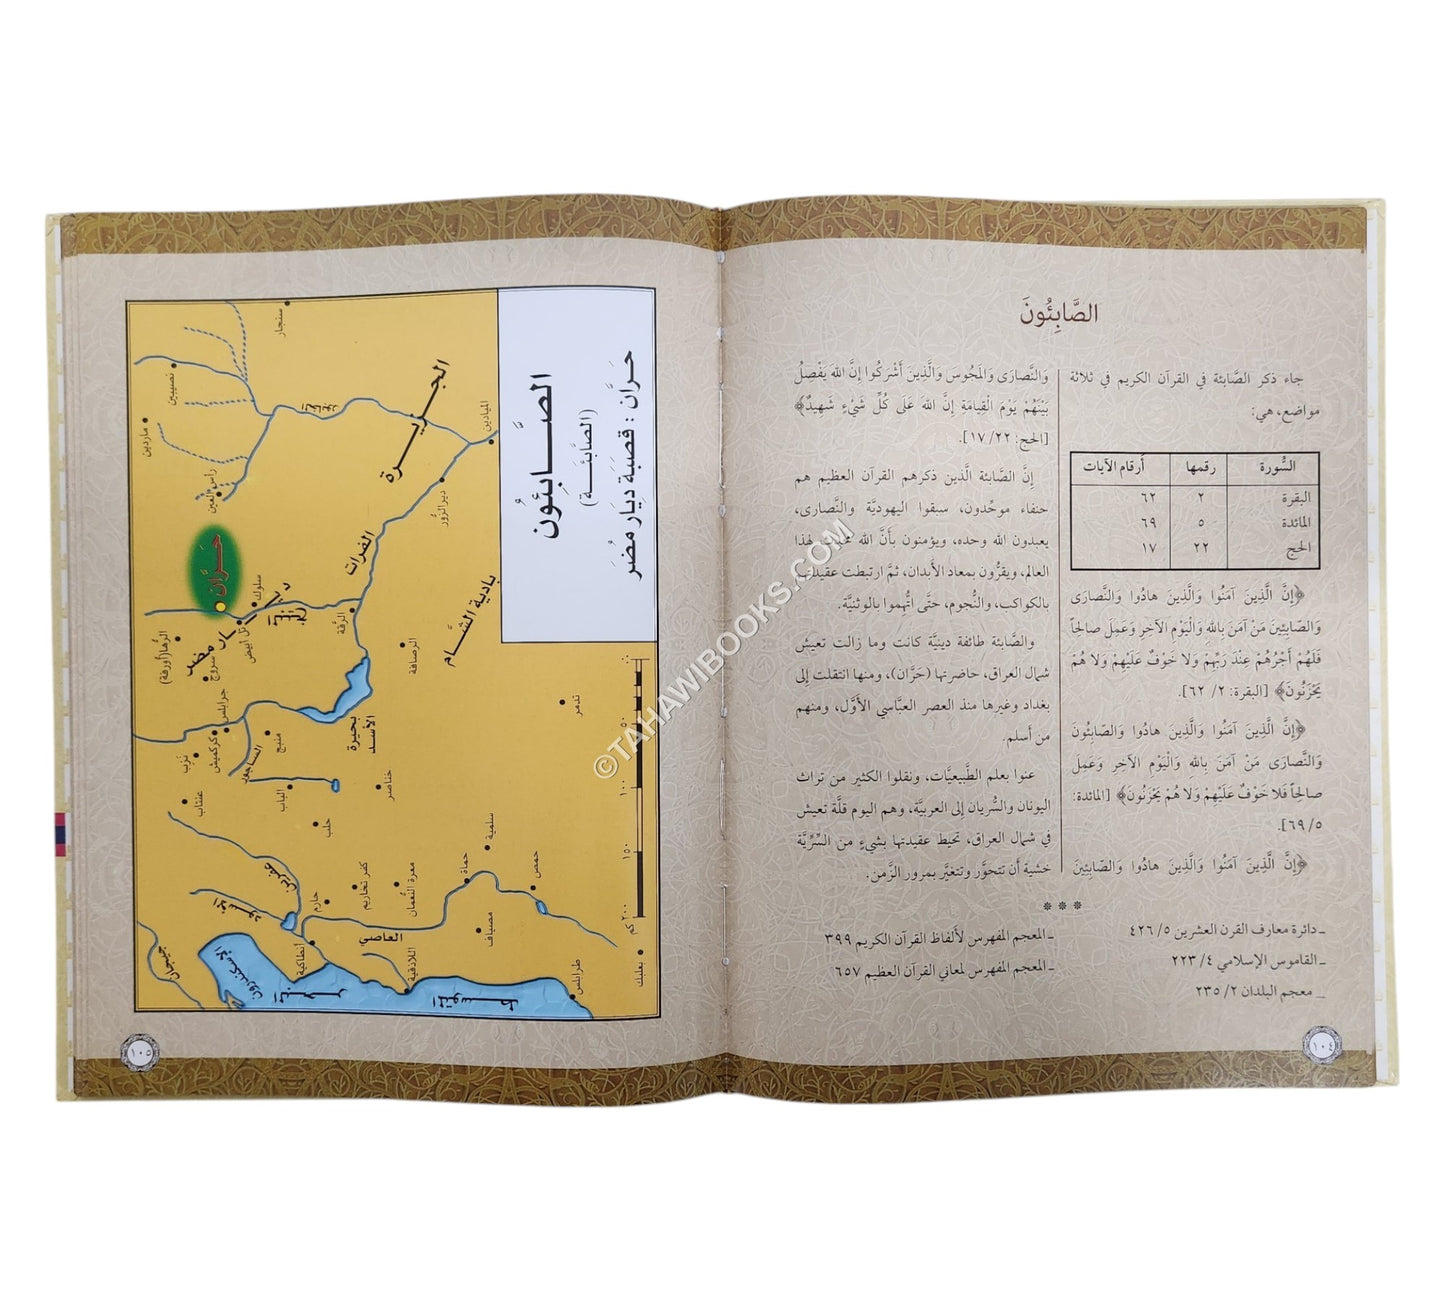 الصَّابِئُونَ
جاء ذكر الصَّابئة في القرآن الكريم في ثلاثة
مواضع، هي:
السُّورة رقمها أرقام الآيات
البقرة ٢ ٦٢
المائدة ٥ ٦٩
الحج ٢٢ ١٧
﴿إِنَّ الَّذِينَ آمَنُوا وَالَّذِينَ هادُوا وَالنَّصارَى
وَالصّابِئِينَ مَنْ آمَنَ بِاللهِ وَالْيَوْمِ الآخِرِ وَعَمِلَ صالِحاً
فَلَهُمْ أَجْرُهُمْ عِنْدَ رَبِّهِمْ وَلا خَوْفٌ عَلَيْهِمْ وَلا هُمْ
يَحْزَنُونَ﴾ [البقرة: ٢/ ٦٢].
﴿إِنَّ الَّذِينَ آمَنُوا وَالَّذِينَ هادُوا وَالصّابِئُونَ
وَالنَّصارَى مَنْ آمَنَ بِاللهِ وَالْيَوْمِ الآخِرِ وَعَمِلَ
صالِحاً فَلا خَوْفٌ عَلَيْهِمْ وَلا هُمْ يَحْزَنُونَ﴾ [المائدة:
٥/ ٦٩].
﴿إِنَّ الَّذِينَ آمَنُوا وَالَّذِينَ هادُوا وَالصّابِئِينَ
وَالنَّصارَى وَالمَجُوسَ وَالَّذِينَ أَشْرَكُوا إِنَّ اللهَ يَفْصِلُ
بَيْنَهُمْ يَوْمَ الْقِيامَةِ إِنَّ اللهَ عَلَى كُلِّ شَيْءٍ شَهِيدٌ﴾
[الحج: ٢٢/ ١٧].
إنَّ الصَّابئة الَّذين ذكرهم القرآن العظيم هم
حنفاء موحِّدون، سبقوا اليهوديَّة والنَّصارى،
يعبدون الله وحده، ويؤمنون بأنَّ الله لهذا
العالم، ويقرُّون بمعاد الأبدان، ثمَّ ارتبطت عقيدتهم
بالكواكب، والنُّجوم، حتَّى اتُّهموا بالوثنيَّة.
والصَّابئة طائفة دينيَّة كانت وما زالت تعيش
شمال العراق، حاضرتها (حَرَّان)، ومنها انتقلت إلى
بغداد وغيرها منذ العصر العبَّاسي الأوَّل، ومنهم
من أسلم.
عنوا بعلم الطَّبيعيَّات، ونقلوا الكثير من تراث
اليونان والسُّريان إلى العربيَّة، وهم اليوم قلَّة تعيش
في شمال العراق، تحيط عقيدتها بشيءٍ من السِّرِّيَّة
خشية أن تتحوَّر وتتغيَّر بمرور الزَّمن.
***
ـ دائرة معارف القرن العشرين ٥/ ٤٢٦
ـ القاموس الإسلامي ٤/ ٢٢٣
ـ معجم البلدان ٢/ ٢٣٥
ـ المعجم المفهرس لألفاظ القرآن الكريم ٣٩٩
ـ المعجم المفهرس لمعاني القرآن العظيم ٦٥٧
١٠٤
الصَّابِئُون
(الصَّابئَة)
حَرَّان : قصبَة ديَار مُضَر
سنجار
نصيبين
ماردين
رأس العين
الجزيرة
الميادين
ديرالزور
حَرَّان
الفرات
سلوك
ديار مضر
تل أبيض
الرَّقة
الرُّها (أورفة)
سروج
بادية الشَّام
الرصافة
تدمر
جرابلس
كركميش
منبج
بحيرة
الأسد
نزب
الساجور
عنتاب
الباب
خناصر
حلب
عفرين
حارم
كفر تخاريم
معرة النُّعمان
حماة
سلمية
حمص
مصياف
العاصي
أنطاكية
اللاذقية
طرابلس
بعلبك
جيحان
المتوسط
٥٠
١٠٠
١٥٠
٢٠٠ كم
١٠٥
©TAHAWIBOOKS.COM